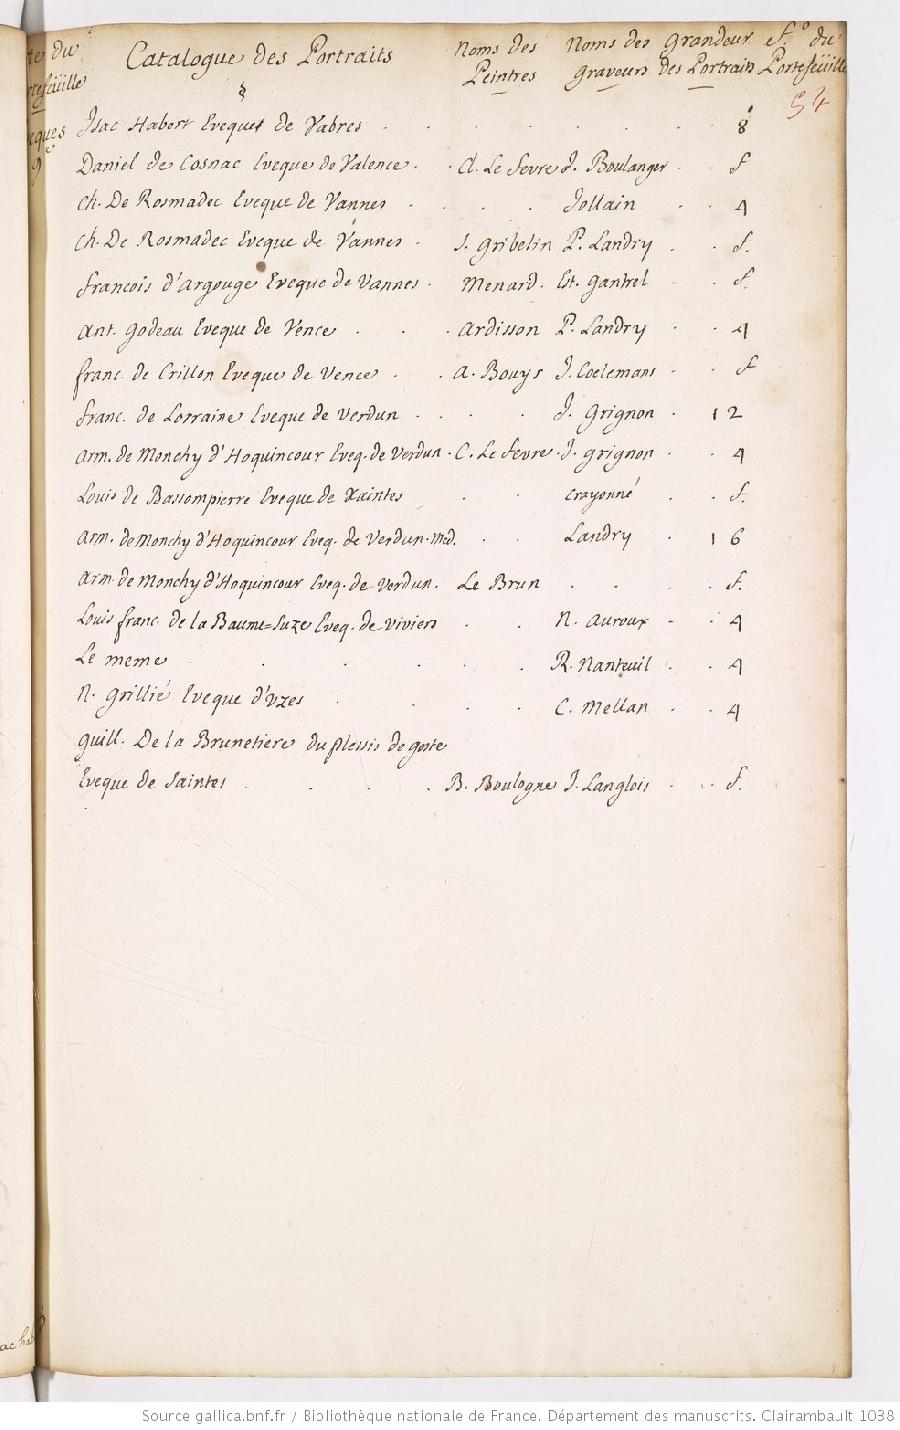 te du Catalogue des Portraits Noms des Noms des Grandeur et f.º du
rtefeüille § Peintres Graveurs des Portraits Portefeüille
54
eques Isac Habert Evequet de Vabres 8º
9e Daniel de Cosnac Eveque de Valence Cl. Le fevre J. Boulanger f
Ch. De Rosmadec Eveque de Vannes Jollain 4
Ch. De Rosmadec Eveque de Vannes J. Gribelin P. Landry f.
françois d'Argouge Eveque de Vannes Menard. Et. Gantrel f.
Ant. Godeau Eveque de Vence Ardisson P. Landry 4
franc de Crillon Eveque de Vence A. Bouys J. Coelemans f
franc. de Lorraine Eveque de Verdun J. Grignon 12
Arm. de Monchy d'Hoquincour Eveq. de Verdun C. Le fevre J. Grignon 4
Louis de Bassompierre Eveque de Xaintes crayonné f.
Arm. de Monchy d'Hoquincour Eveq. de Verdun. med. Landry 16
Arm. de Monchy d'Hoquincour Eveq. de Verdun. Le Brun f.
Louis franc. de la Baume=Suze Eveq. de Viviers N. Auroux 4
Le meme R. Nanteuil 4
N. Grillié Eveque d'Uzes C. Mellan 4
Guill. De la Brunetiere du plessis de geste
Eveque de Saintes B. Boulogne J. Langlois f.
Source gallica.bnf.fr / Bibliothèque nationale de France. Département des manuscrits. Clairambault 1038